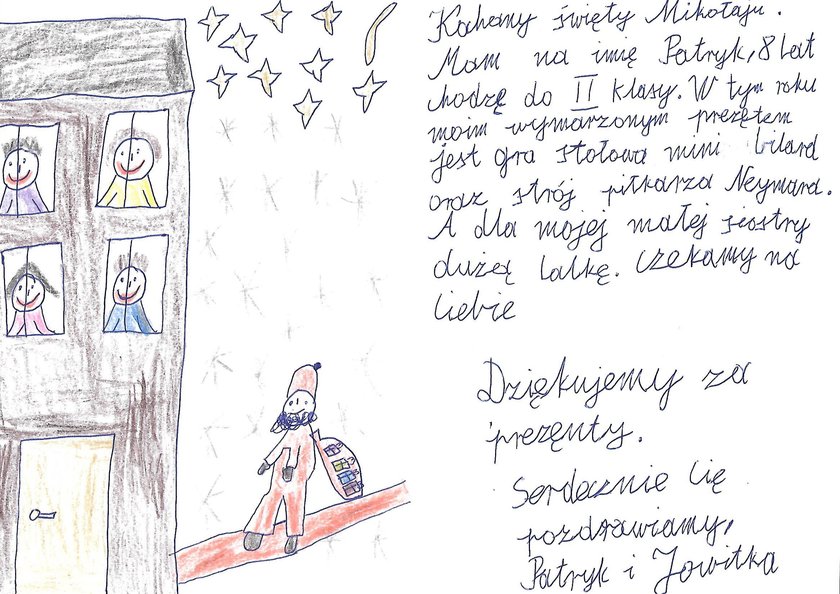 Kochamy święty Mikołaju.
Mam na imię Patryk, 8 lat
chodzę do II klasy. W tym roku
moim wymarzonym prezętem
jest gra stołowa mini bilard
oraz strój piłkarza Neymara.
A dla mojej małej siostry
dużą lalkę. czekamy na
Ciebie
Dziękujemy za
prezęnty.
Serdecznie Cię
pozdrawiamy,
Patryk i Jowitka